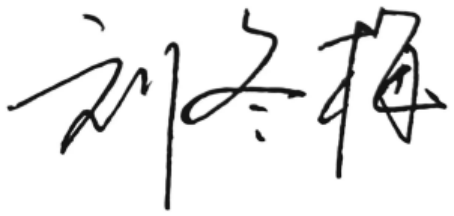 刘冬梅